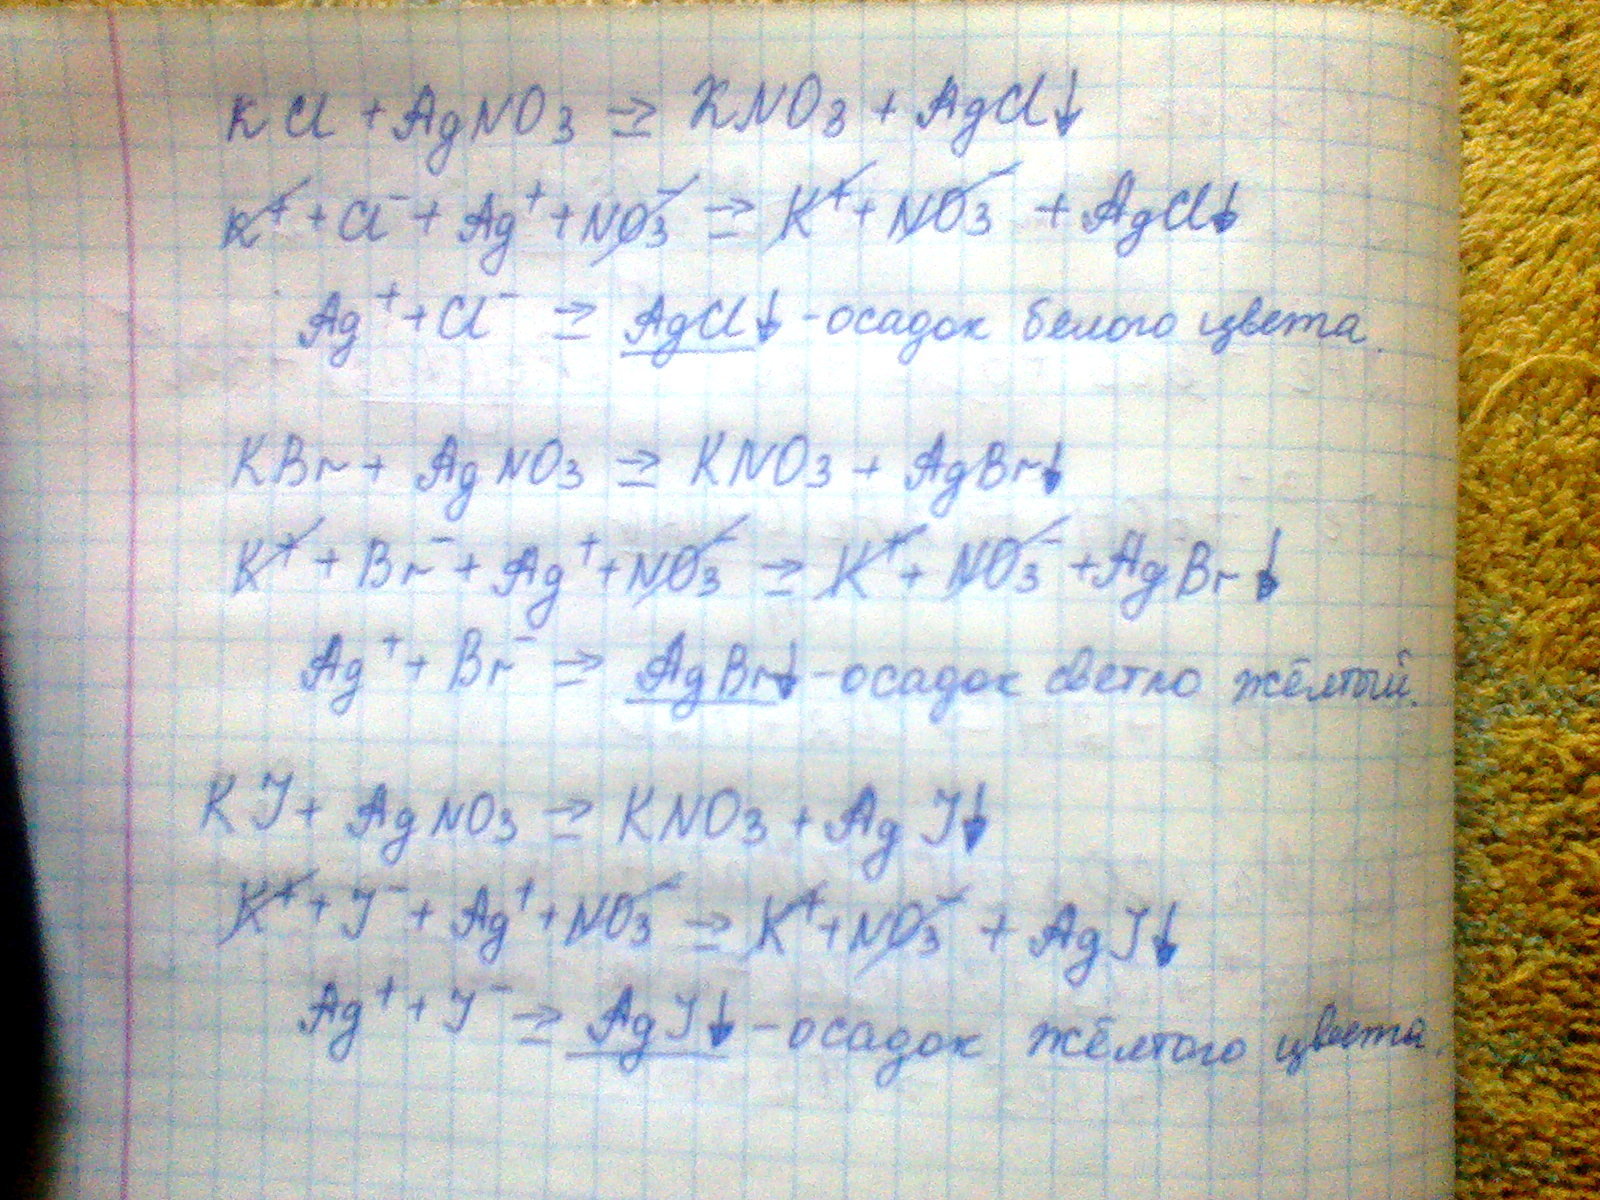 KCl + AgNO3 ⇒ KNO3 + AgCl↓
K⁺ + Cl⁻ + Ag⁺ + NO3⁻ ⇒ K⁺ + NO3⁻ + AgCl↓
Ag⁺ + Cl⁻ ⇒ AgCl↓ - осадок белого цвета.
KBr + AgNO3 ⇒ KNO3 + AgBr↓
K⁺ + Br⁻ + Ag⁺ + NO3⁻ ⇒ K⁺ + NO3⁻ + AgBr↓
Ag⁺ + Br⁻ ⇒ AgBr↓ - осадок светло жёлтый.
KJ + AgNO3 ⇒ KNO3 + AgJ↓
K⁺ + J⁻ + Ag⁺ + NO3⁻ ⇒ K⁺ + NO3⁻ + AgJ↓
Ag⁺ + J⁻ ⇒ AgJ↓ - осадок жёлтого цвета.